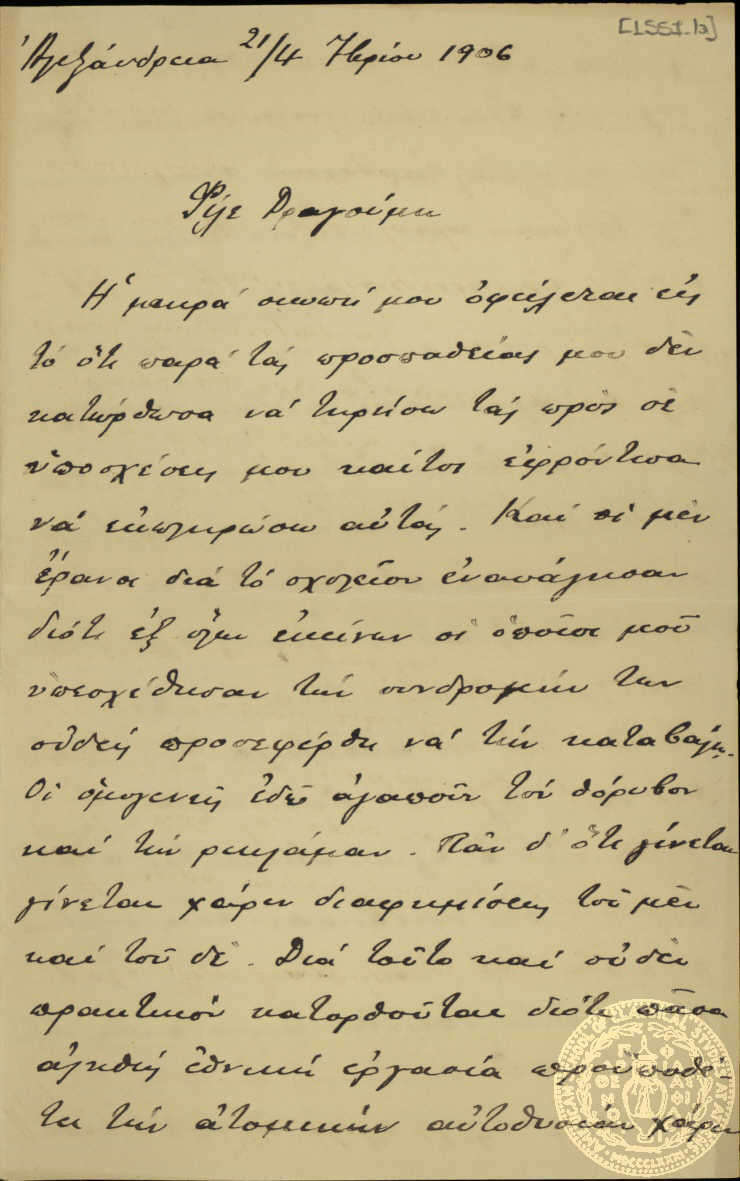 [LSS1-b]
Ἀλεξάνδρεια 21/4 7βρίου 1906
Φίλε Δραγούμη
Ἡ μακρά σιωπή μου ὀφείλεται εἰς
τό ὅτι παρά τάς προσπαθείας μου δέν
κατώρθωσα νά τηρήσω τάς πρός σέ
ὑποσχέσεις μου καίτοι ἐφρόντισα
νά ἐκπληρώσω αὐτάς. Καί οἱ μέν
ἔρανοι διά τό σχολεῖον ἐναυάγησαν
διότι ἐξ ὅλων ἐκείνων οἱ ὁποῖοι μοῦ
ὑπεσχέθησαν τήν συνδρομήν των
οὐδείς προσεφέρθη νά τήν καταβάλῃ.
Οἱ ὁμογενεῖς ἐδῶ ἀγαποῦν τόν θόρυβον
καί τήν ρεκλάμαν. Πᾶν δ' ὅτι γίνεται
γίνεται χάριν διαφημίσεως τοῦ μέν
καί τοῦ δέ. Διά τοῦτο καί οὐδέν
πρακτικόν κατορθοῦται διότι πᾶσα
ἀληθής ἐθνική ἐργασία προϋποθέ-
τει τήν ἀτομικήν αὐτοθυσίαν χάριν